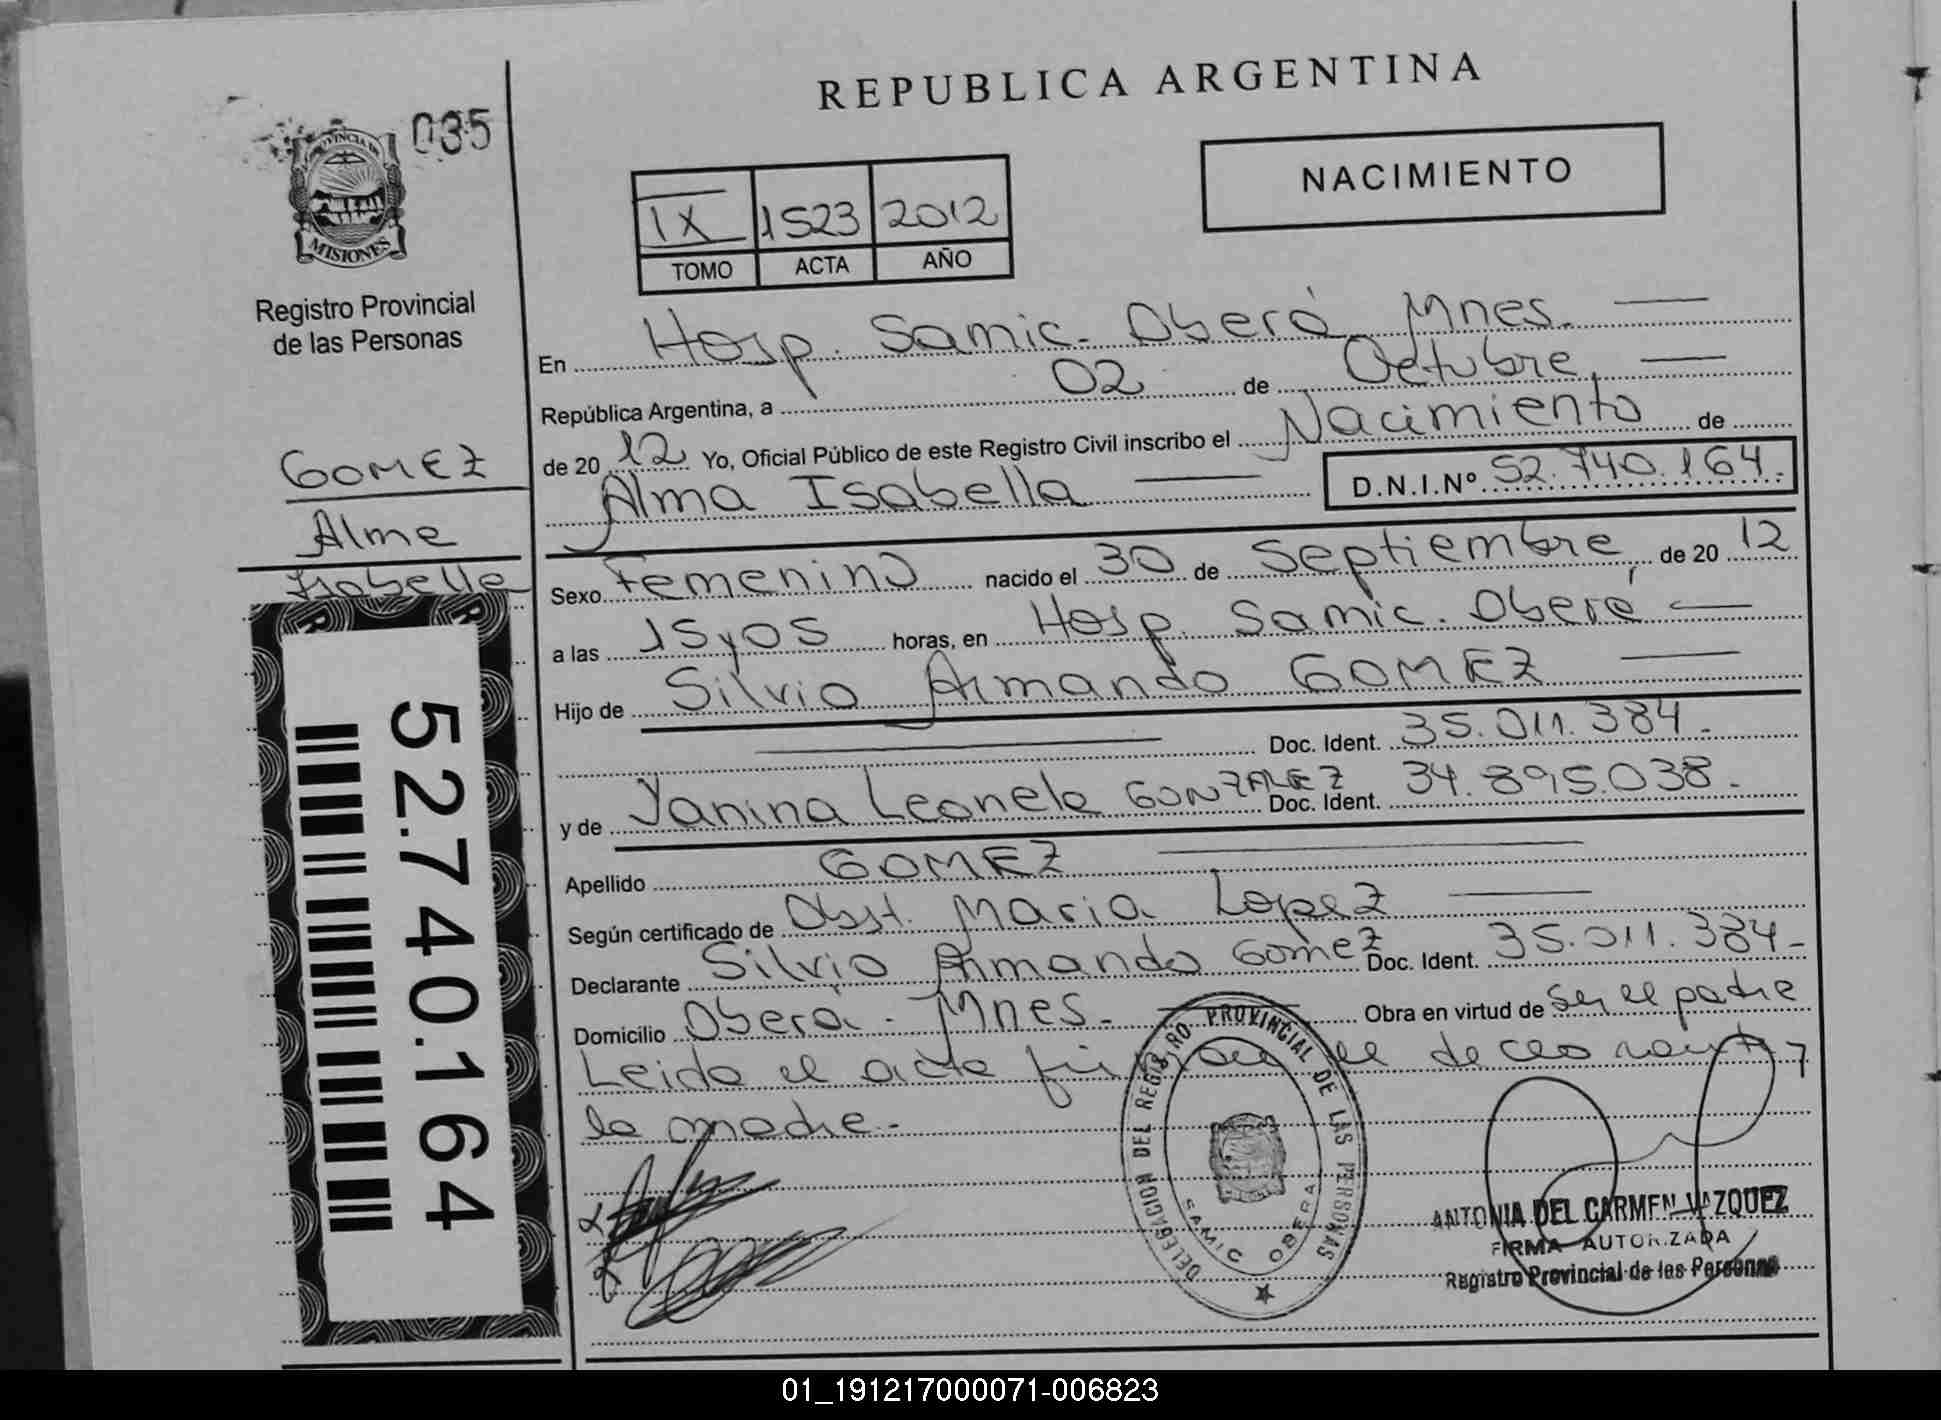 REPUBLICA ARGENTINA
035
PROVINCIA DE
MISIONES
Registro Provincial
de las Personas
NACIMIENTO
IX 1523 2012
TOMO ACTA AÑO
En Hosp. Samic. Oberá Mnes.
República Argentina, a 02 de Octubre
de 20 12 Yo, Oficial Público de este Registro Civil inscribo el Nacimiento de
Alma Isabella D.N.I.Nº 52.740.164.
GOMEZ
Alma
Isabella
Sexo Femenino nacido el 30 de Septiembre de 20 12
a las 15y05 horas, en Hosp. Samic. Oberá
Hijo de Silvio Armando GOMEZ
Doc. Ident. 35.011.384.-
y de Yanina Leonela GONZALEZ Doc. Ident. 34.895.038.-
Apellido GOMEZ
Según certificado de Obst. Maria Lopez
Declarante Silvio Armando Gomez Doc. Ident. 35.011.384-
Domicilio Oberá - Mnes. Obra en virtud de Ser el padre
Leida el acta el declarante y
la madre.-
52.740.164
DELEGACION DEL REGISTRO PROVINCIAL DE LAS PERSONAS
SAMIC OBERA
ANTONIA DEL CARMEN VAZQUEZ
FIRMA AUTORIZADA
Registro Provincial de las Personas
01_191217000071-006823